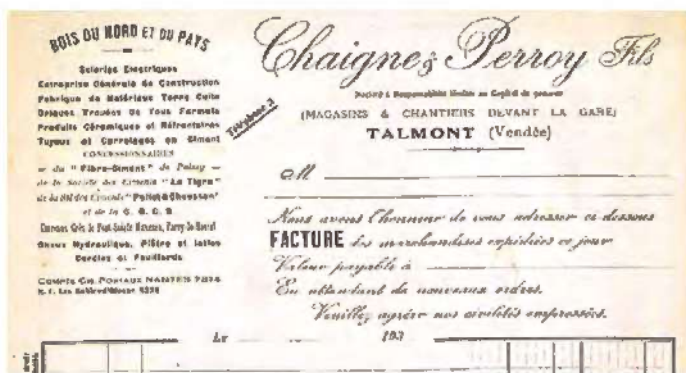 BOIS DU NORD ET DU PAYS
Scieries Electriques
Entreprise Générale de Construction
Fabrique de Matériaux Terre Cuite
Briques Trouées de Tous Formats
Produits Céramiques et Réfractaires
Tuyaux et Carrelages en Ciment
CONCESSIONNAIRES
du "Fibro-Ciment" de Poissy
de la Société des Ciments "La Tigre"
de la Sté des Ciments "Pollet & Chausson"
et de la C. G. C. B
Chaux Hydraulique, Plâtre et lattes
Cercles et Feuillards
COMPTE CH. POSTAUX NANTES
R. C. Les Sables d'Olonne
Téléphone 3
Chaigne & Perroy Fils
Société à Responsabilité limitée au Capital de
(MAGASINS & CHANTIERS DEVANT LA GARE)
TALMONT (Vendée)
M
Nous avons l'honneur de vous adresser ci-dessous
FACTURE des marchandises expédiées ce jour
Valeur payable à
En attendant de nouveaux ordres,
Veuillez agréer nos civilités empressées.
Le 193